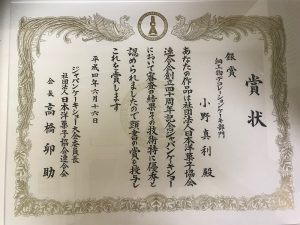 賞状
銀賞
細工物デコレーションケーキ部門
小野真利 殿
あなたの作品は社団法人日本洋菓子協会
連合会創立四十周年記念ジャパンケーキショー
において審査の結果その技術特に優秀と
認められましたので頭書の賞を授与し
これを賞します
平成四年六月十六日
ジャパンケーキショー大会委員長
社団法人日本洋菓子協会連合会
会長 高橋卯助